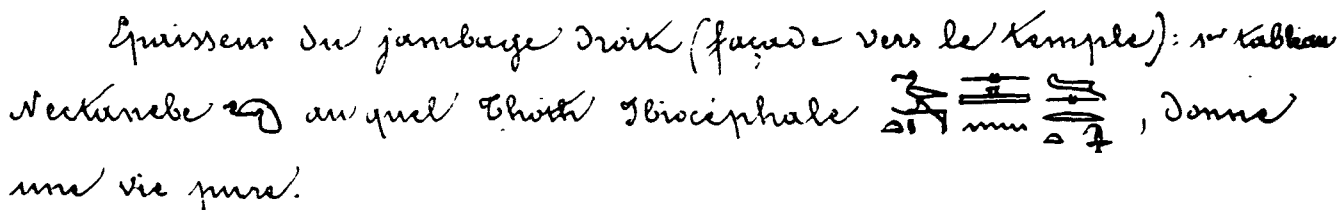 Epaisseur du jambage droit (façade vers le temple): 1er tableau
Nectanebe auquel Thoth Ibiocéphale , donne
une vie pure.